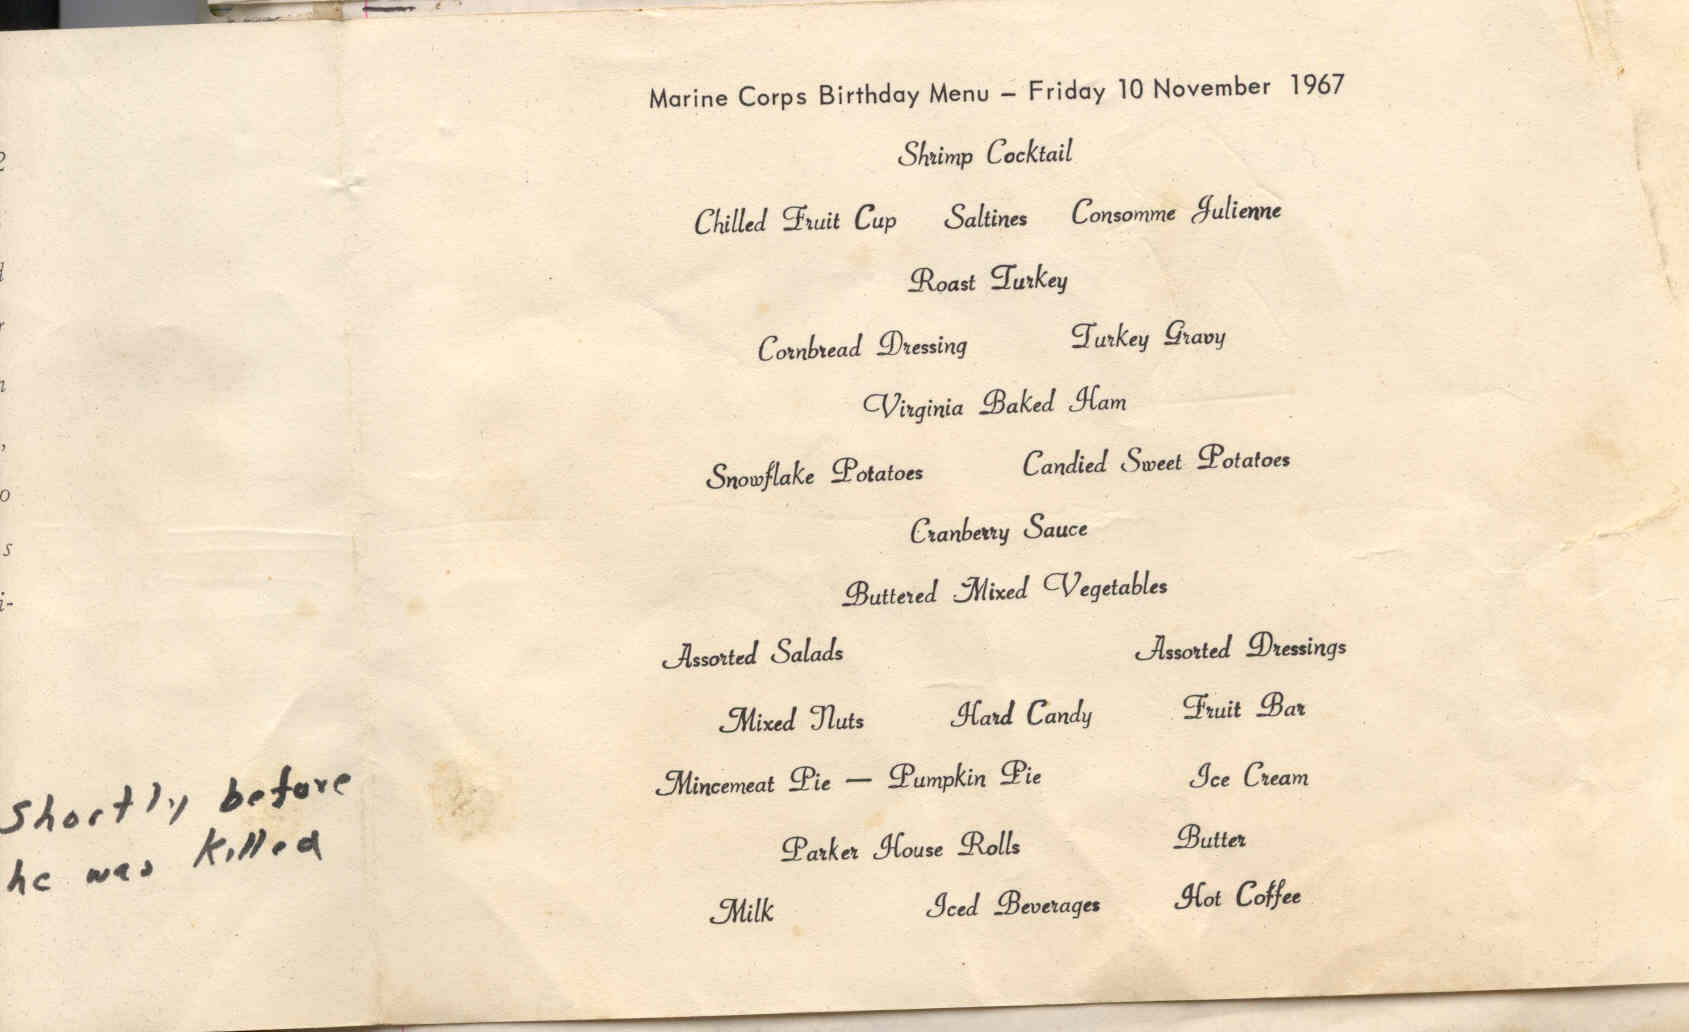 Marine Corps Birthday Menu – Friday 10 November 1967
Shrimp Cocktail
Chilled Fruit Cup Saltines Consomme Julienne
Roast Turkey
Cornbread Dressing Turkey Gravy
Virginia Baked Ham
Snowflake Potatoes Candied Sweet Potatoes
Cranberry Sauce
Buttered Mixed Vegetables
Assorted Salads Assorted Dressings
Mixed Nuts Hard Candy Fruit Bar
Mincemeat Pie — Pumpkin Pie Ice Cream
Parker House Rolls Butter
Milk Iced Beverages Hot Coffee
Shortly before
he was killed